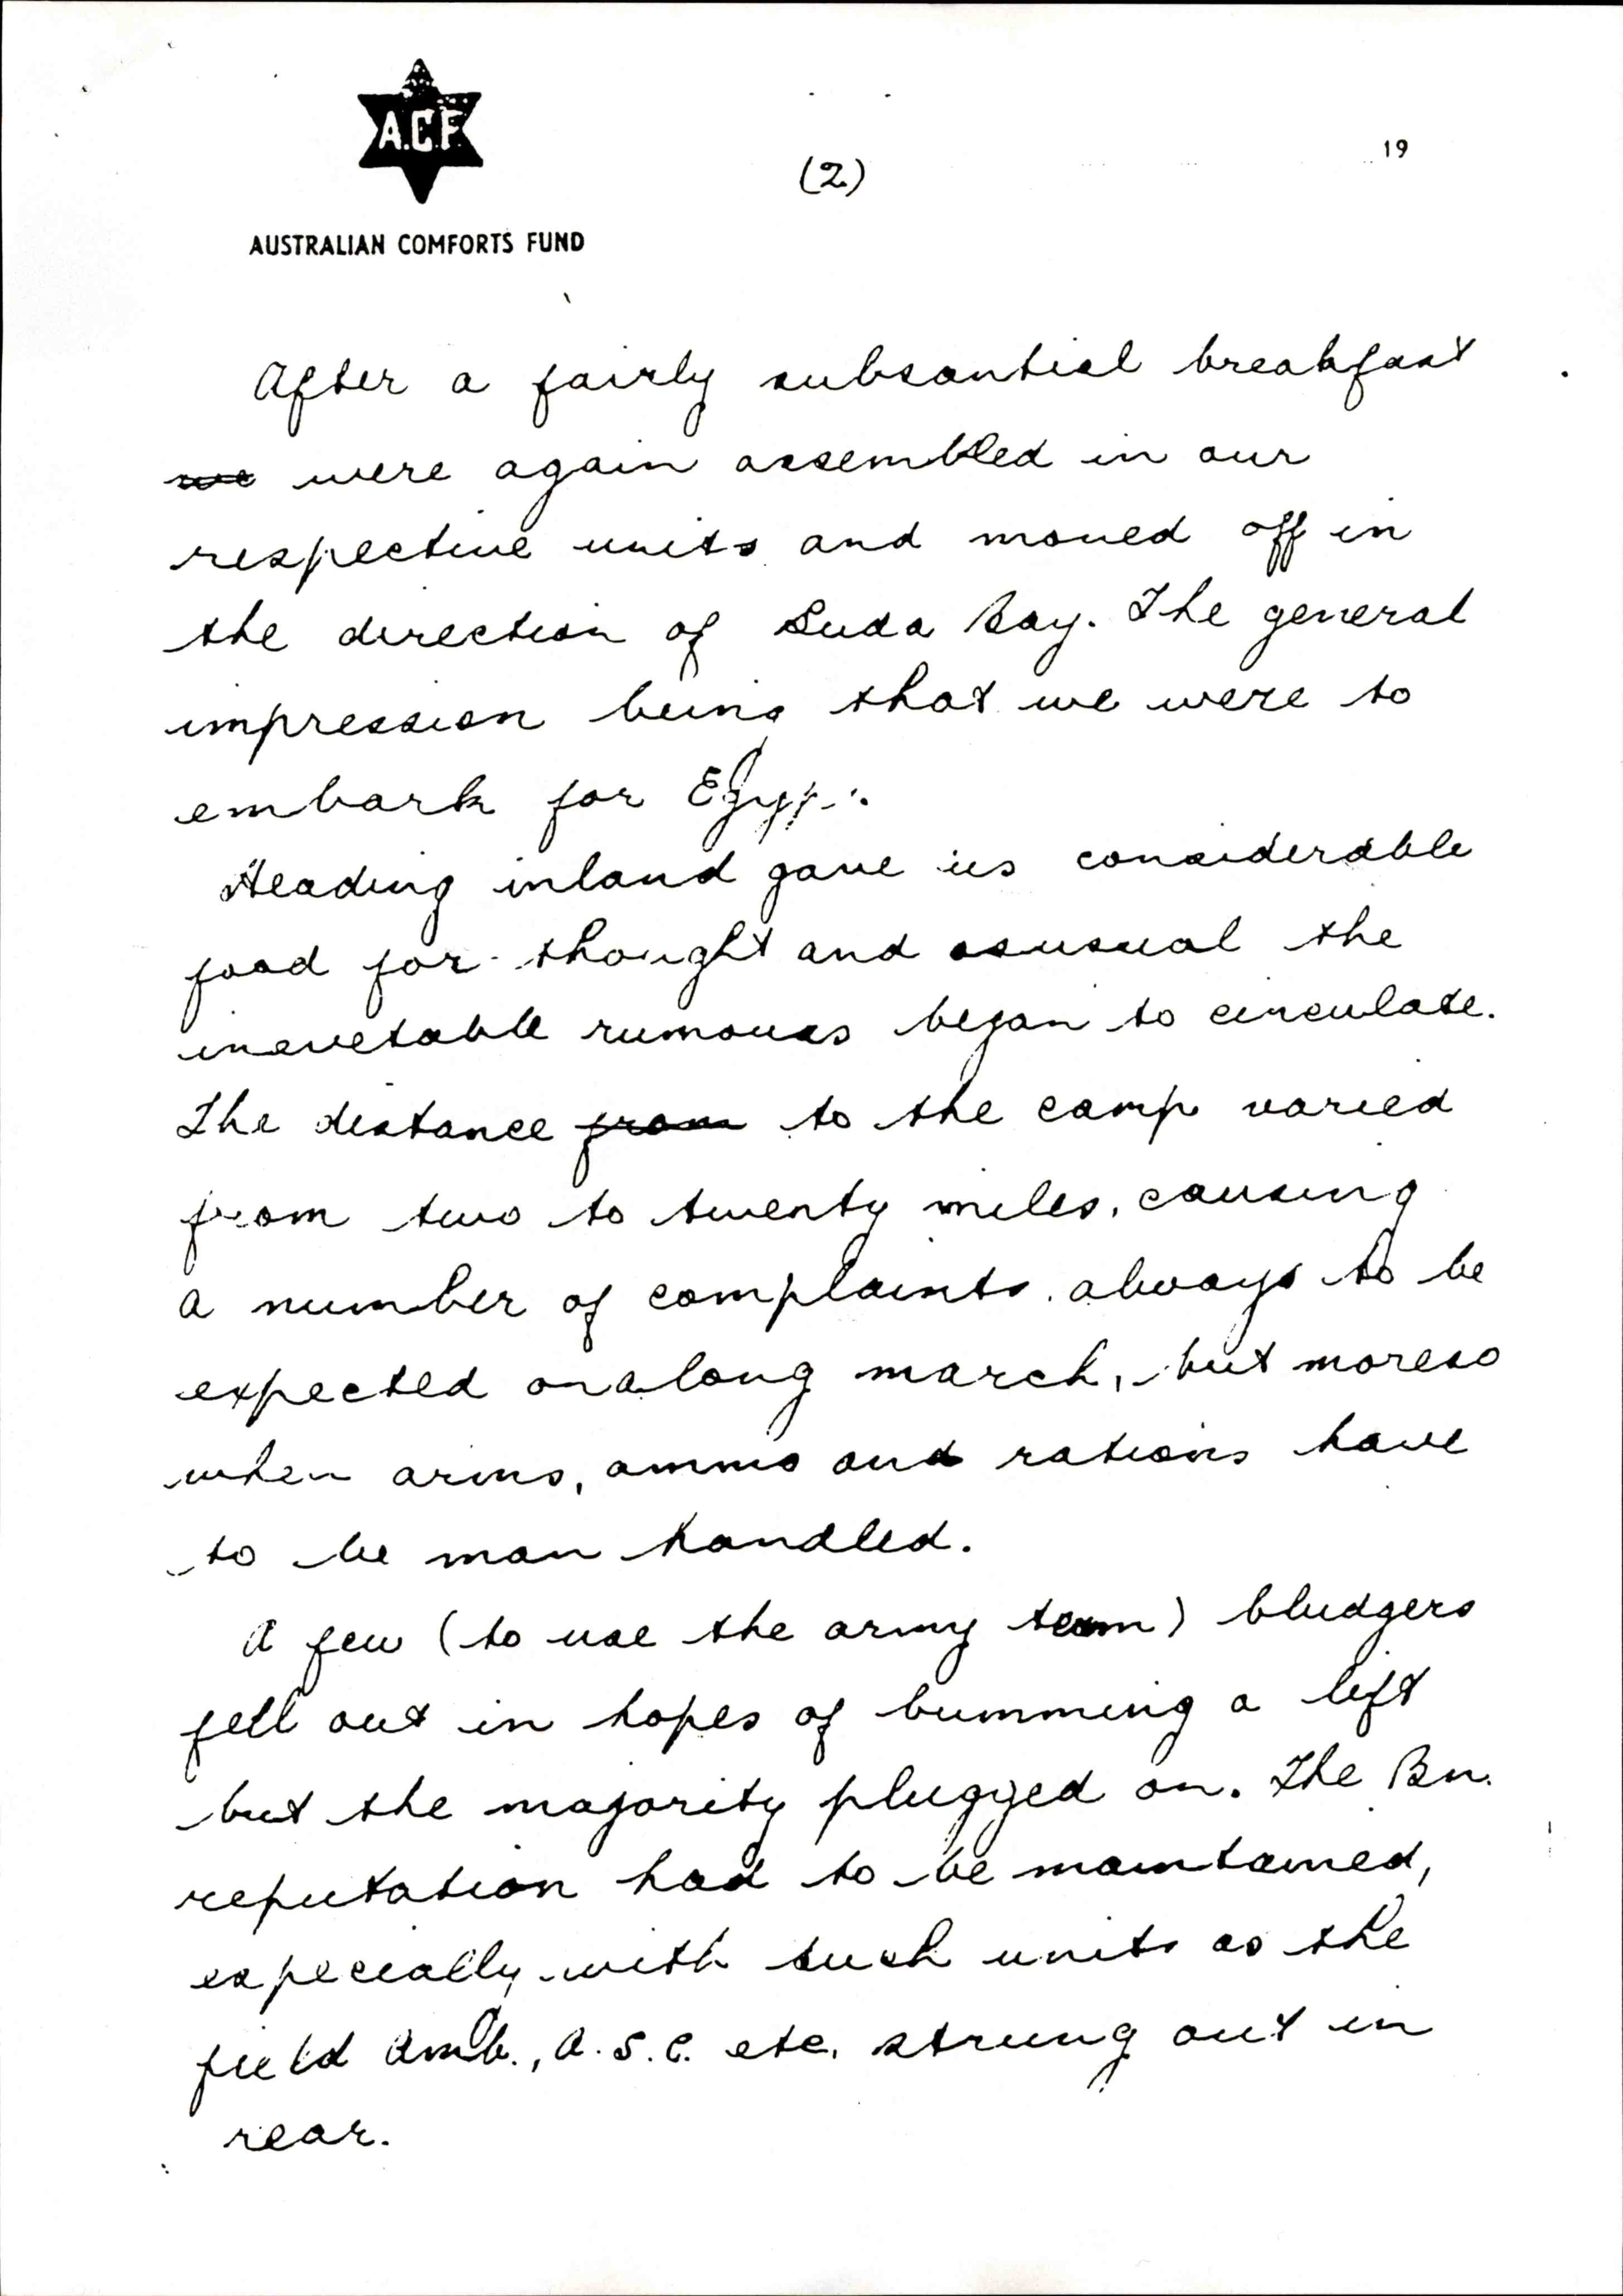 A.C.F.
(2)
19
AUSTRALIAN COMFORTS FUND
After a fairly subsantial breakfast
we were again assembled in our
respective units and moved off in
the direction of Suda Bay. The general
impression being that we were to
embark for Egypt.
Heading inland gave us considerable
food for thought and asusual the
inevetable rumours began to circulate.
The distance from to the camp varied
from two to twenty miles, causing
a number of complaints, always to be
expected on a long march, but moreso
when arms, ammo and rations have
to be man handled.
A few (to use the army term) bludgers
fell out in hopes of bumming a lift
but the majority plugged on. The Bn.
reputation had to be maintained,
especially with such units as the
field Amb., A.S.C. etc. strung out in
rear.